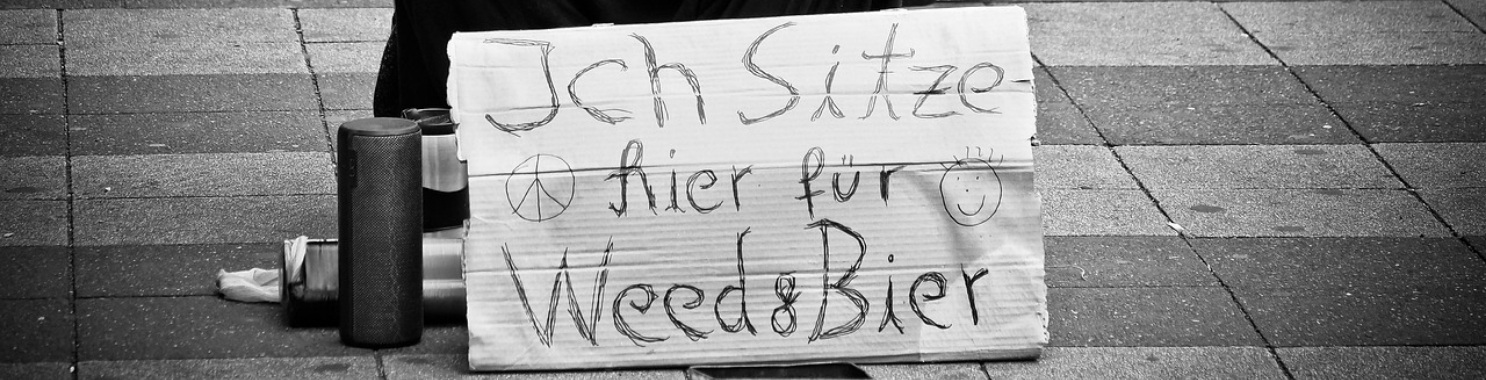 Ich Sitze
hier für
Weed & Bier